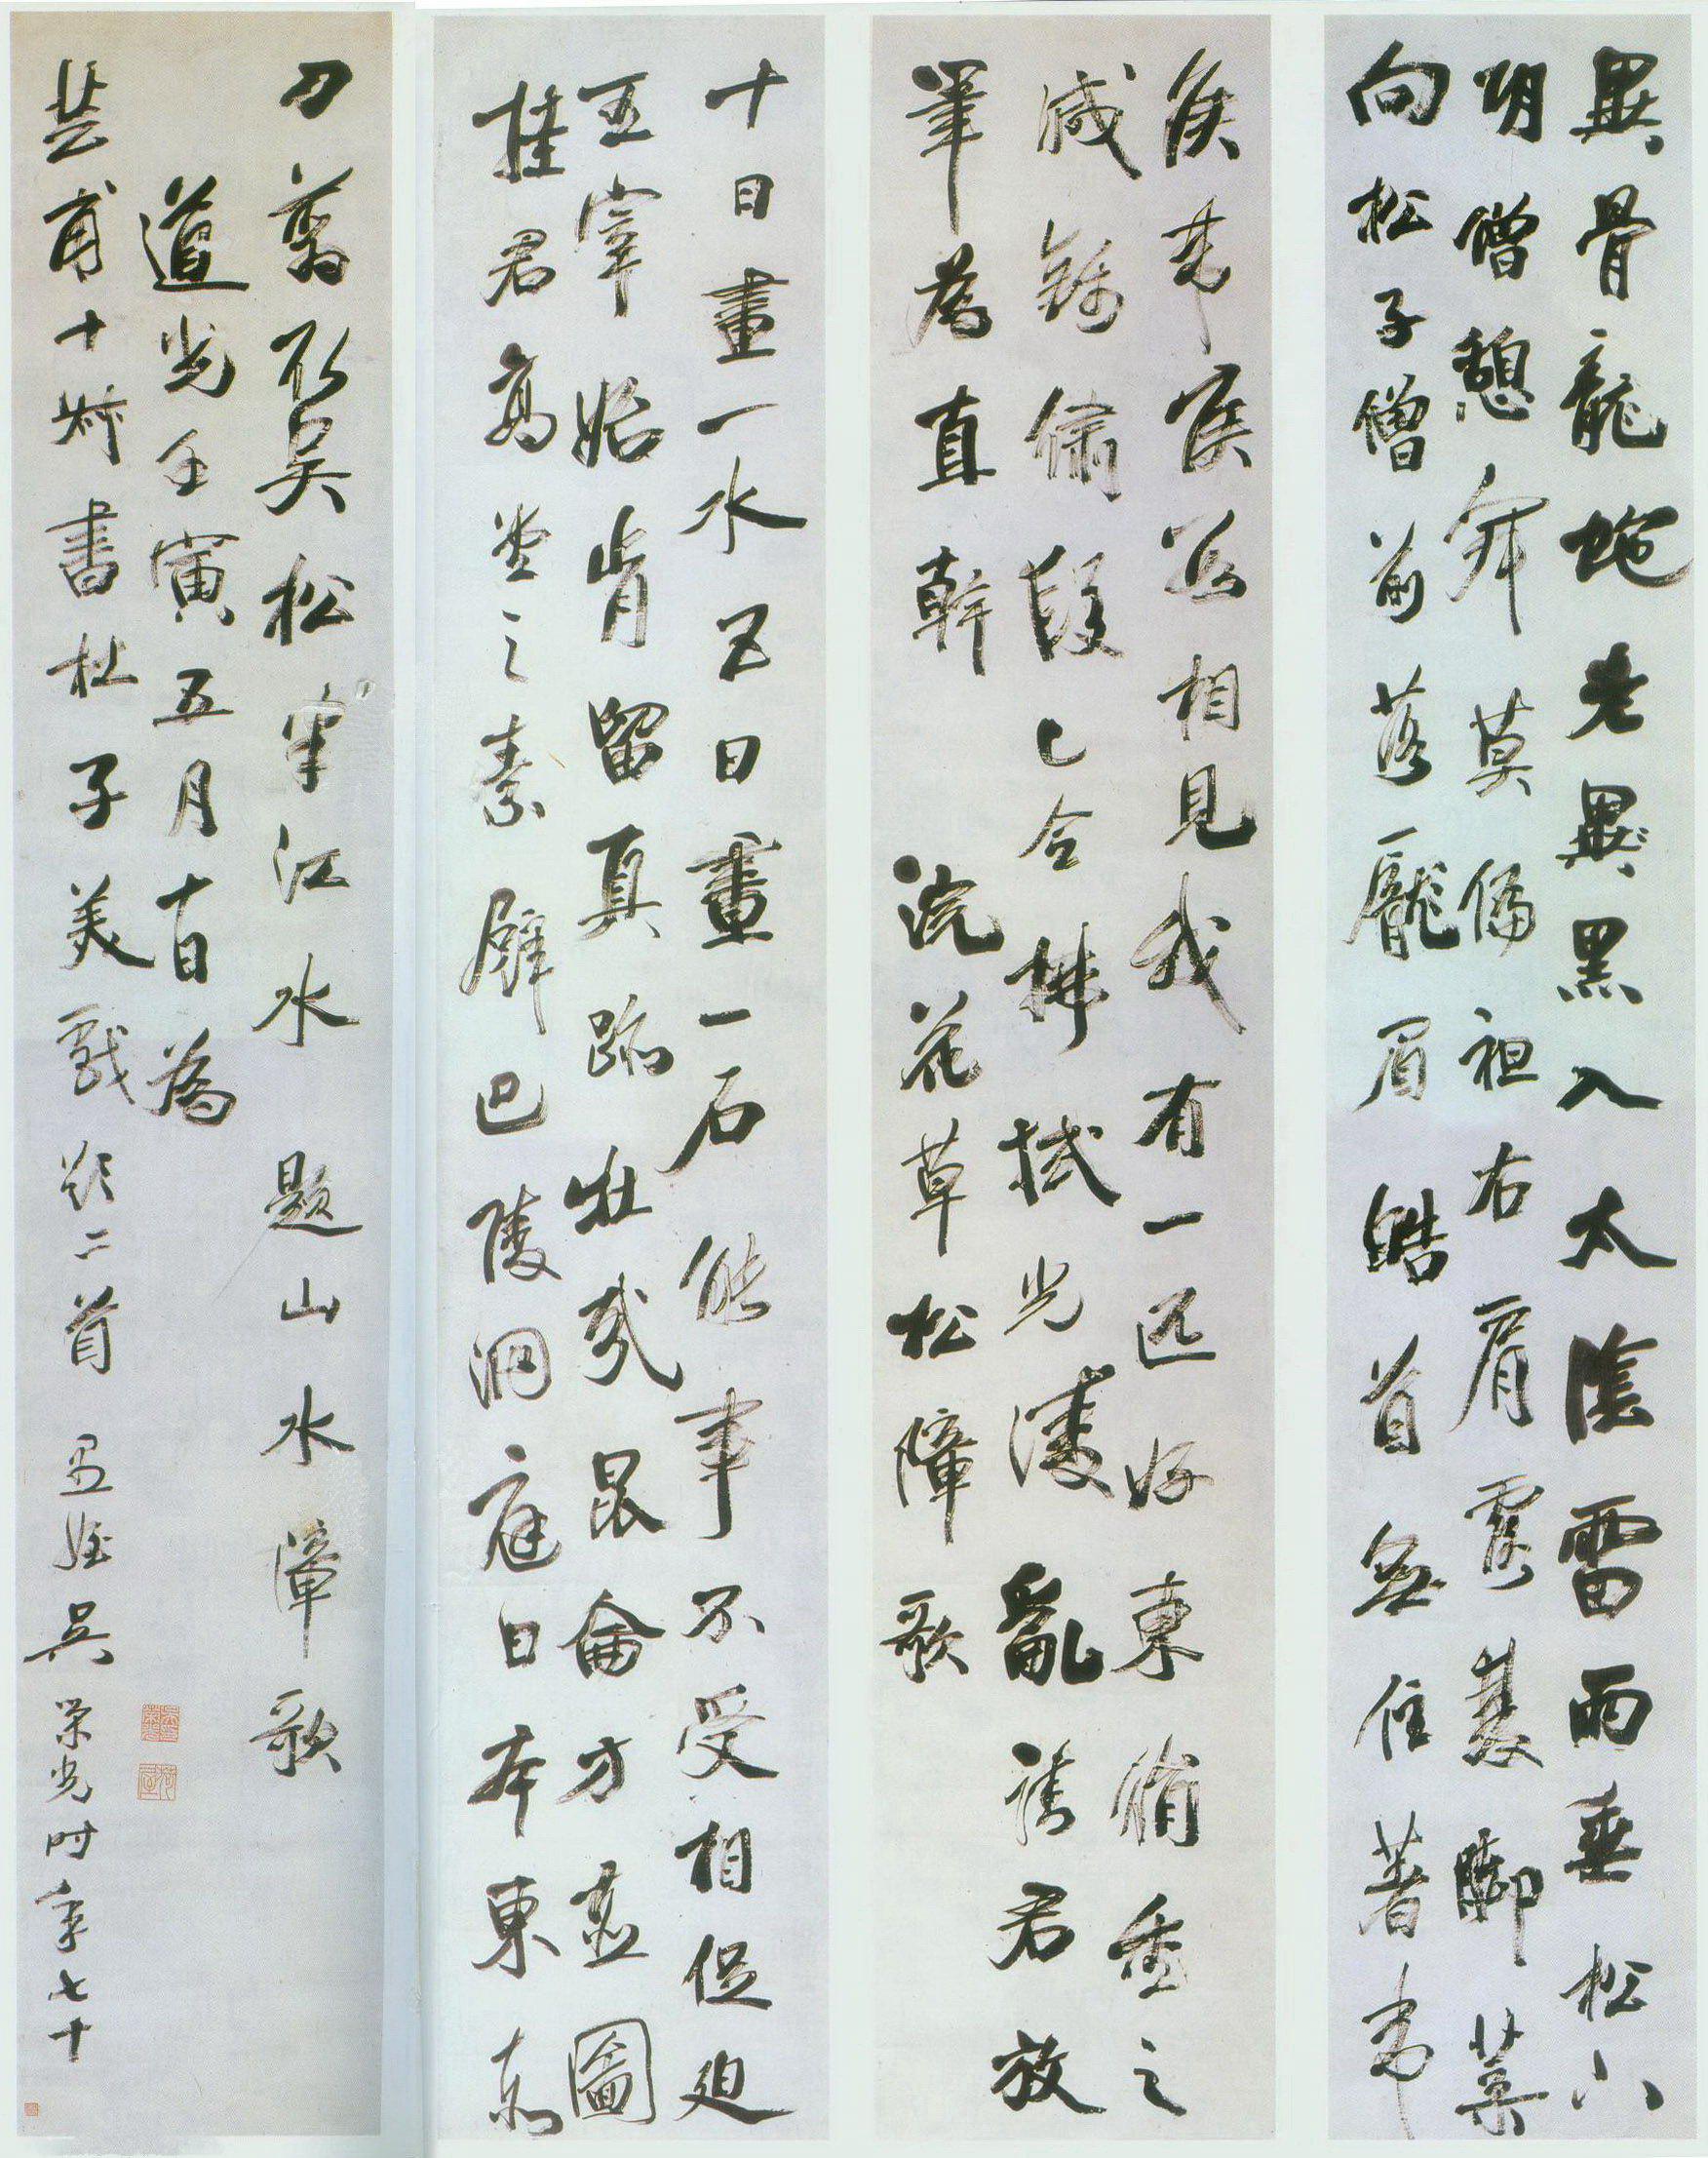 異骨龍蛇老異黑入太陰雷雨垂松下
胡僧憩寂莫偏袒右肩露雙脚葉
向松子僧前落龐眉皓首無住著韋
侯韋侯數相見我有一匹好東絹重之
減錦繡段已令拂拭光凌亂請君放
筆為直幹 浣花草松障歌
十日畫一水五日畫一石能事不受相促迫
王宰始肯留真跡壯哉崑崙方壺圖
挂君高堂之素壁巴陵洞庭日本東
刀翦取吳松半江水 題山水障歌
道光壬寅五月十日為
芸甫十叔書杜子美戲題二首 愚姪吳榮光時年七十